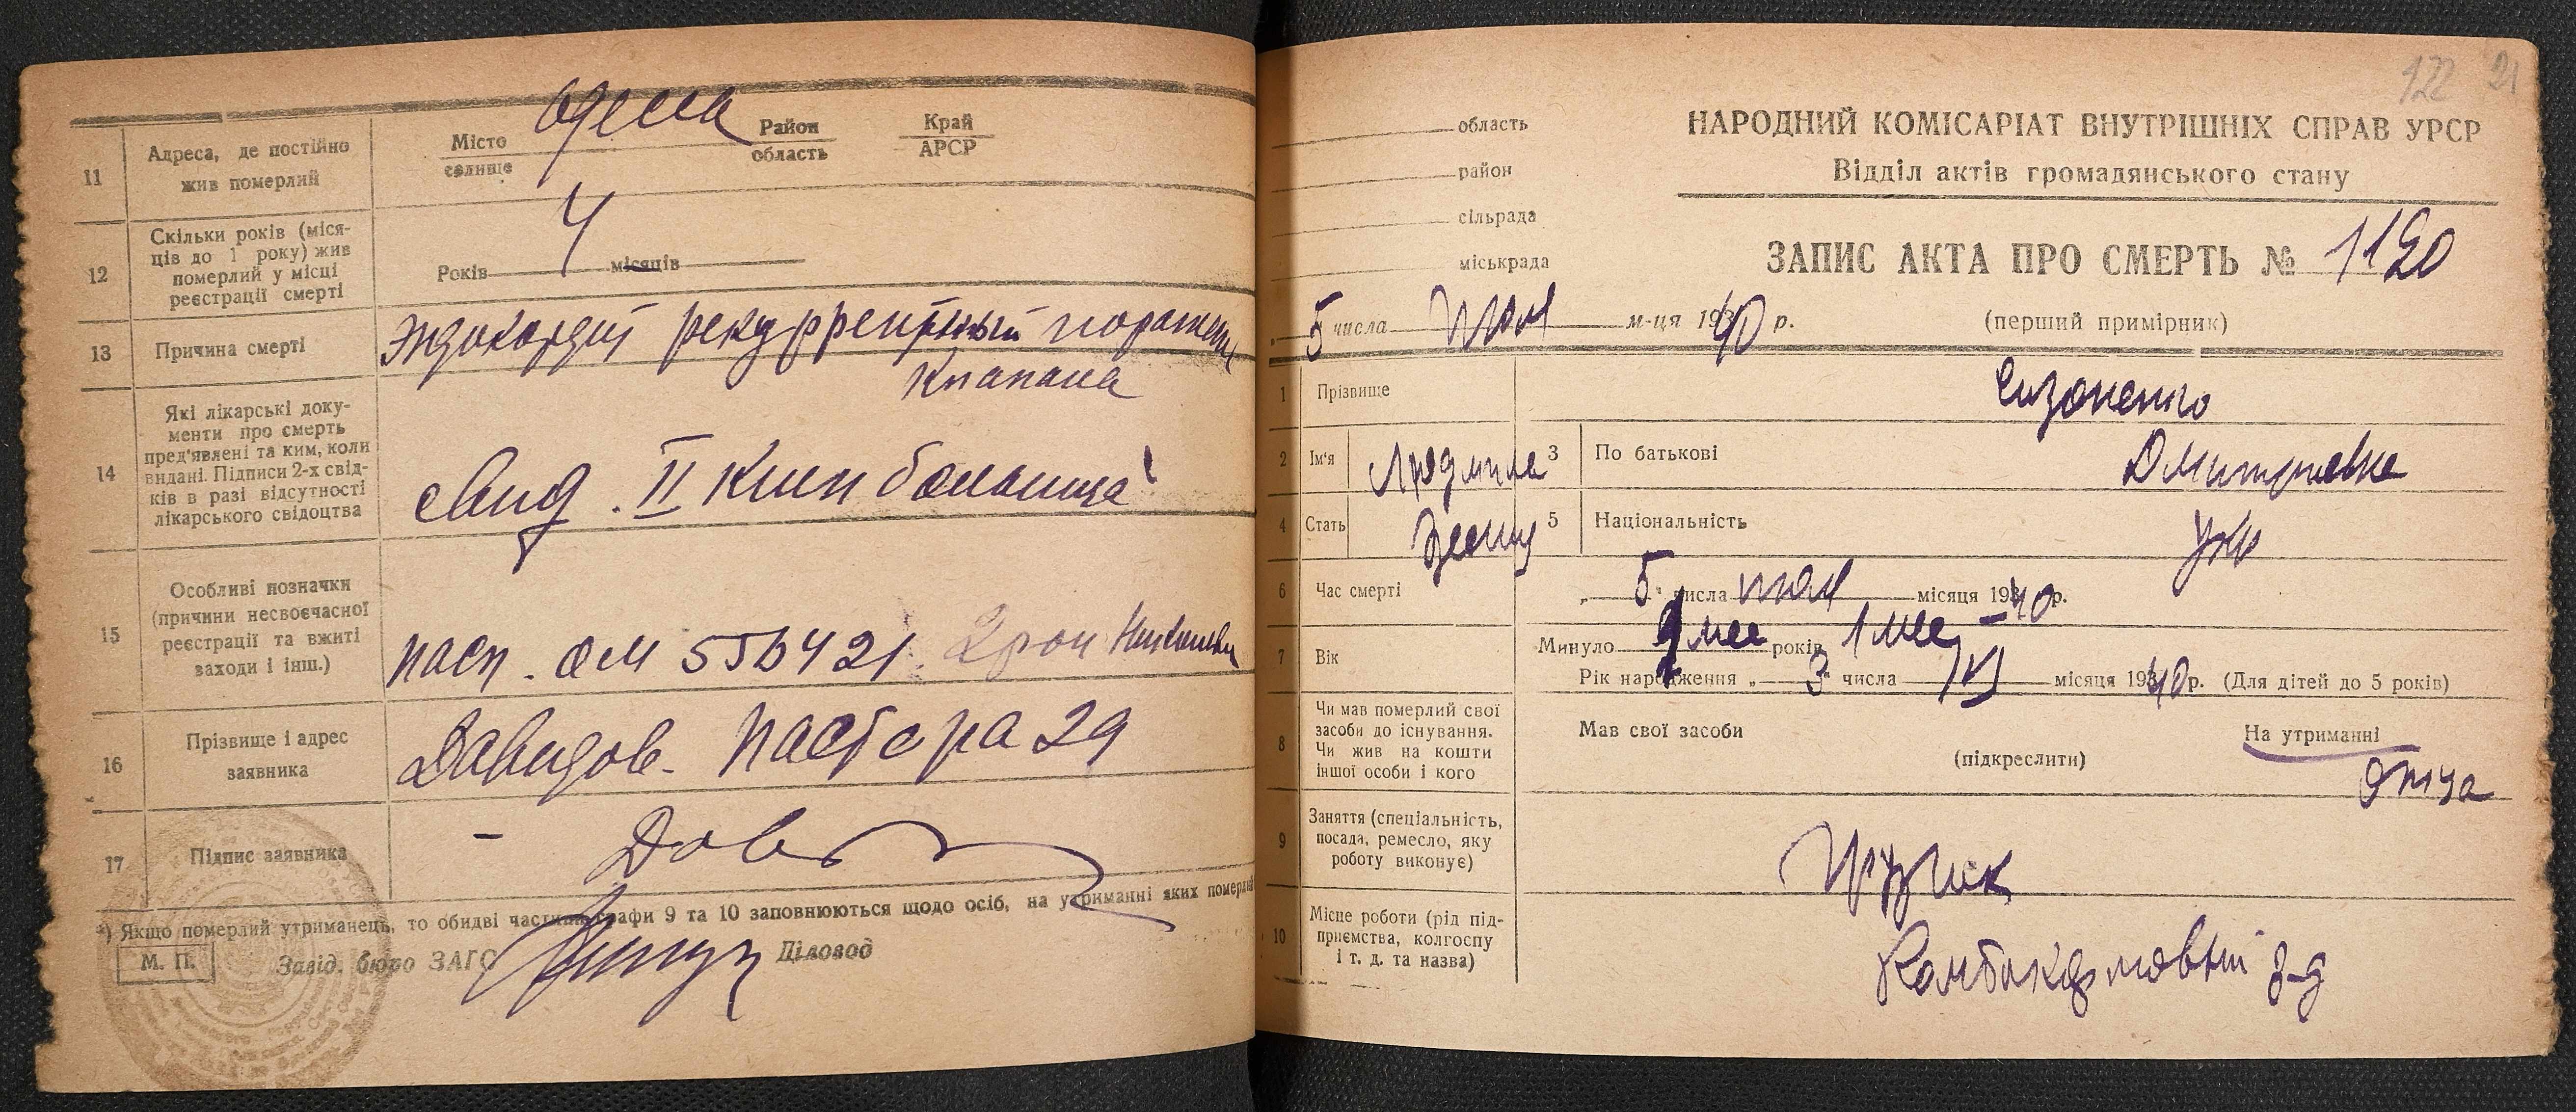 11
Адреса, де постійно
жив померлий
Місто
селище
Одесса
Район
область
Край
АРСР
12
Скільки років (міся-
ців до 1 року) жив
померлий у місці
реєстрації смерті
Років
4
місяців
13
Причина смерті
Эндокардит рекуррентный поражен
клапана
14
Які лікарські доку-
менти про смерть
пред'явлені та ким, коли
видані. Підписи 2-х свід-
ків в разі відсутності
лікарського свідоцтва
свид. II Клин больница
15
Особливі позначки
(причини несвоєчасної
реєстрації та вжиті
заходи і інш.)
пасп.
16
Прізвище і адрес
заявника
Давидов. Пастера 29
17
Підпис заявника
*) Якщо померлий утриманець, то обидві частини графи 9 та 10 заповнюються щодо осіб, на утриманні яких померлий
М. П.
Завід. бюро ЗАГС
Діловод
122 21
область
район
сільрада
міськрада
НАРОДНИЙ КОМІСАРІАТ ВНУТРІШНІХ СПРАВ УРСР
Відділ актів громадянського стану
ЗАПИС АКТА ПРО СМЕРТЬ № 1190
„ 5 числа июл м-ця 1940 р.
(перший примірник)
1
Прізвище
Сизоненко
2
Ім'я
Людмила
3
По батькові
Дмитриевна
4
Стать
женщ
5
Національність
укр
6
Час смерті
„ 5 " числа июл місяця 1940 р.
7
Вік
Минуло мес років 1 мес
Рік народження „ 3 " числа VI місяця 1940 р. (Для дітей до 5 років)
8
Чи мав померлий свої
засоби до існування.
Чи жив на кошти
іншої особи і кого
Мав свої засоби
(підкреслити)
На утриманні
отца
9
Заняття (спеціальність,
посада, ремесло, яку
роботу виконує)
Грузчик
10
Місце роботи (рід під-
приємства, колгоспу
і т. д. та назва)
з-д